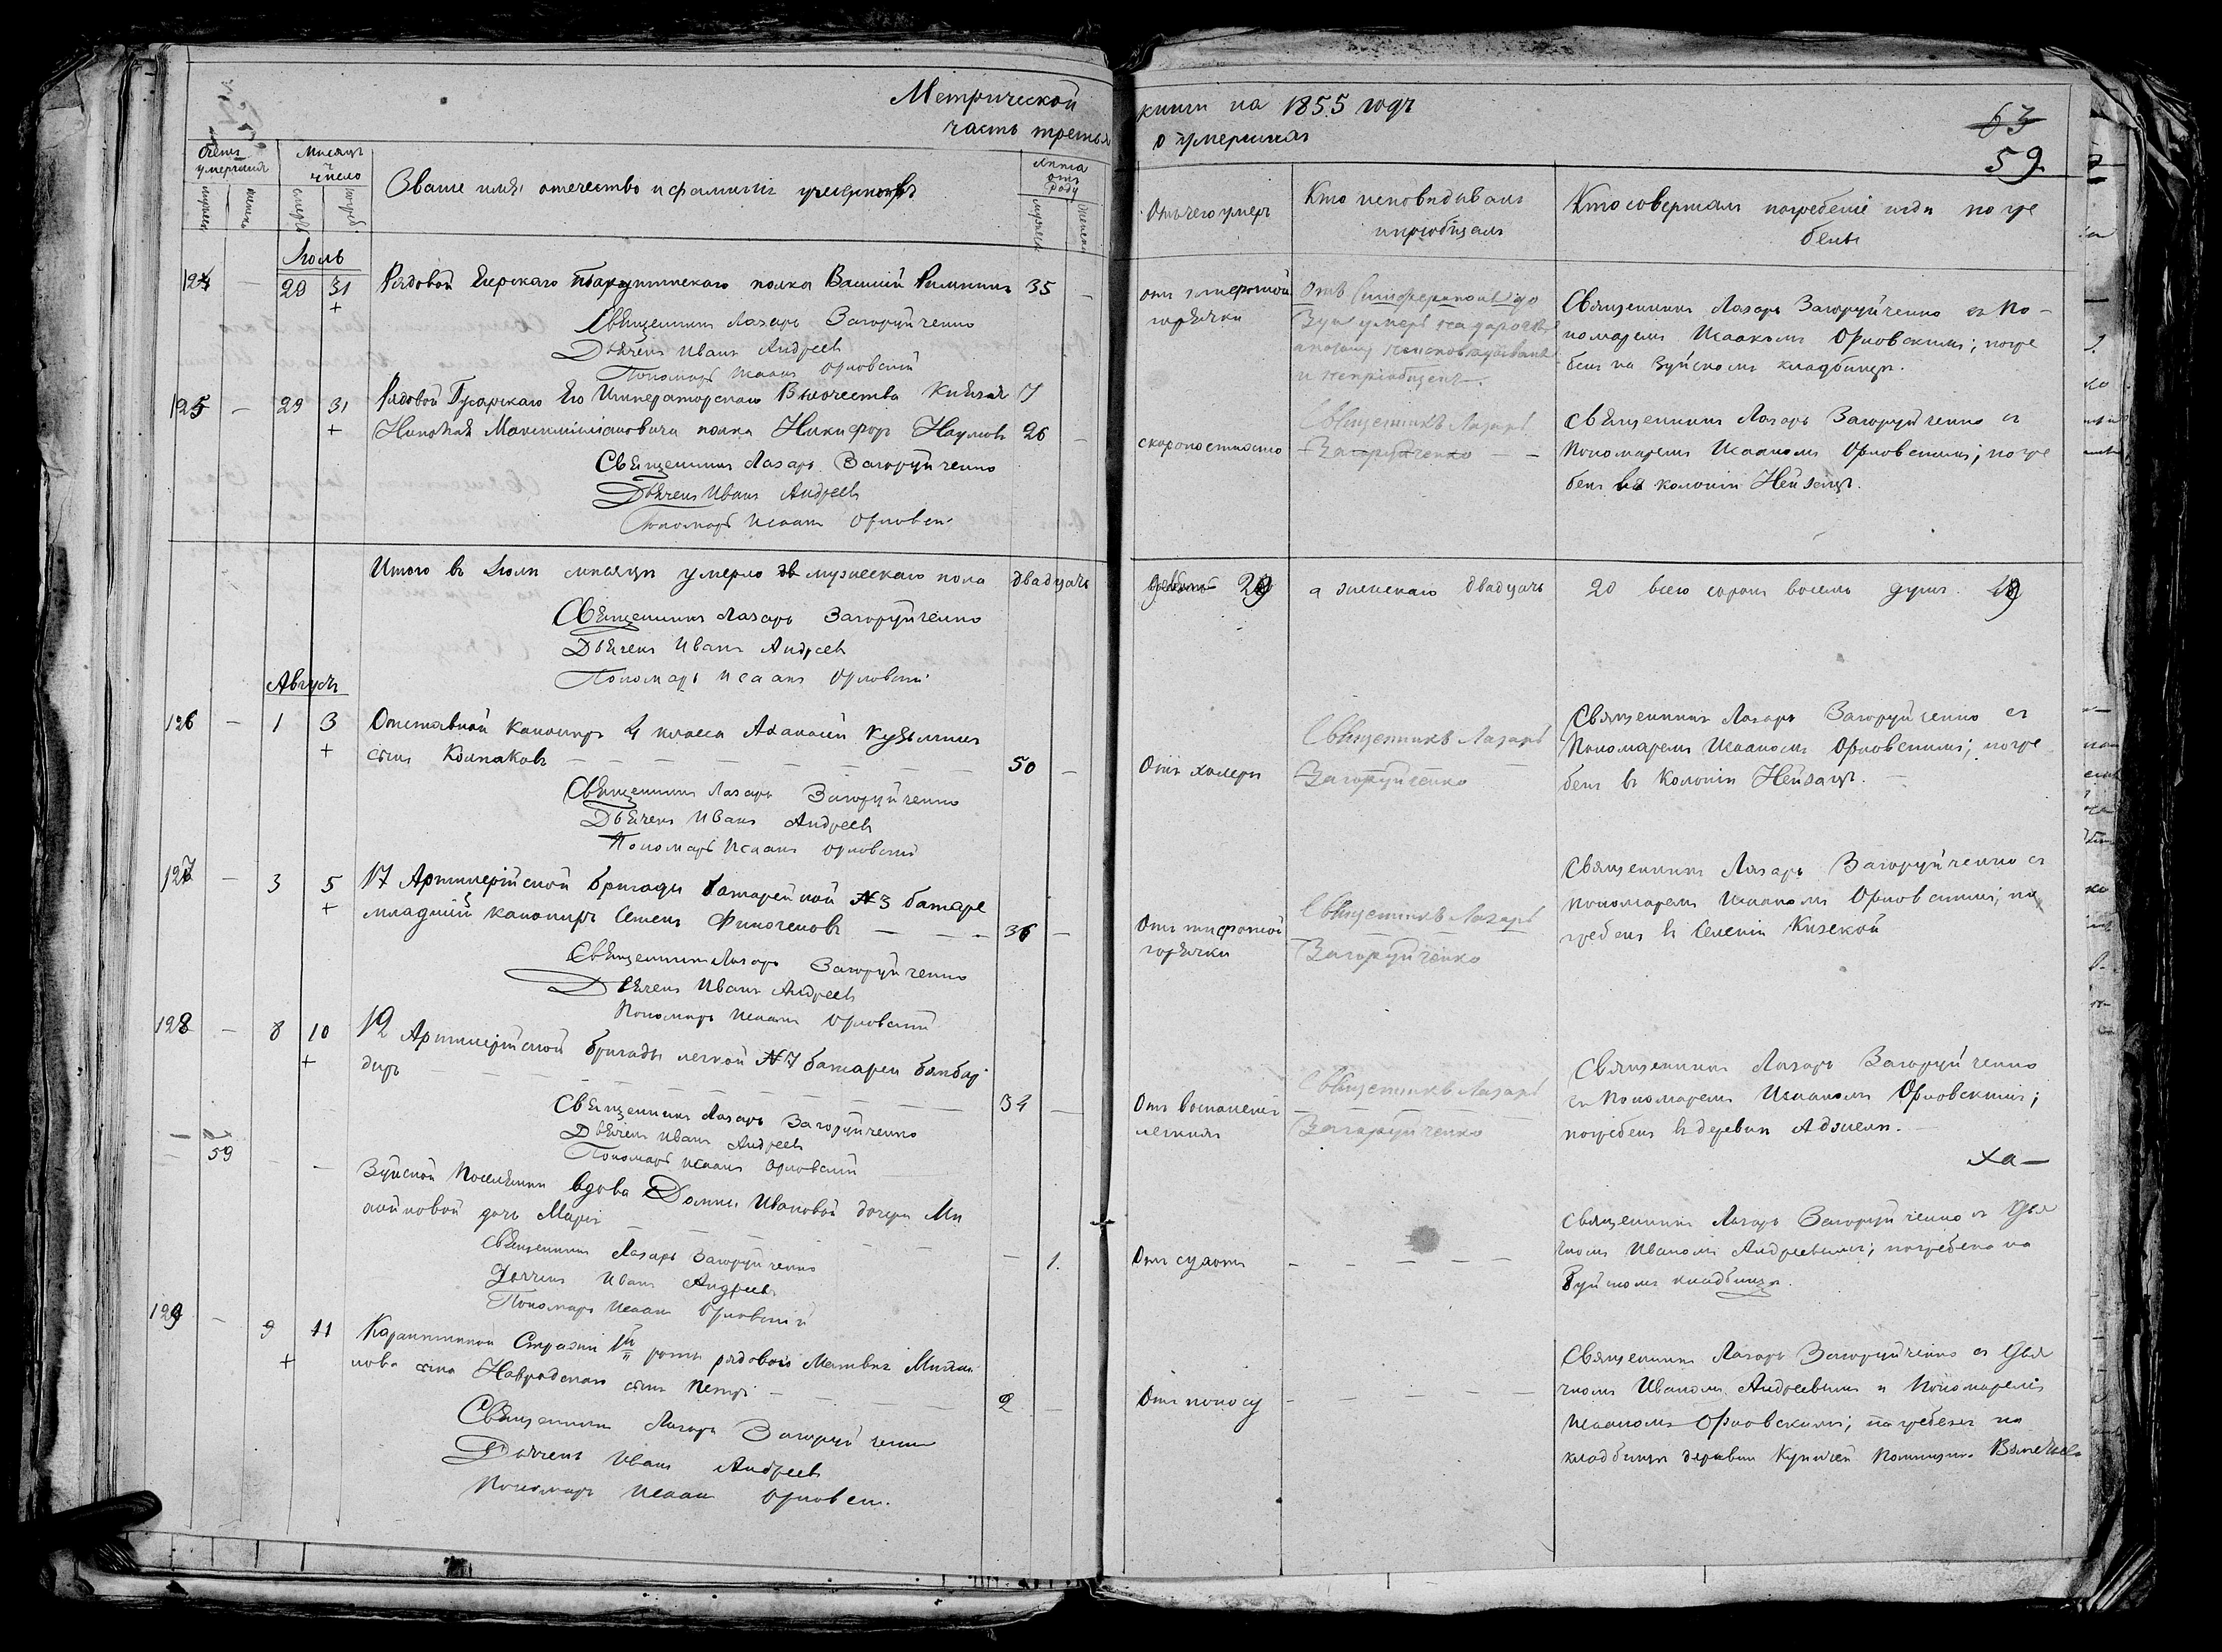 Метрической
часть третья
книги на 1855 годъ
о умершихъ
63
59
Счетъ умершихъ
Мѣсяцъ и число
Званіе имя отечество и фамилія умершихъ
Лѣта отъ роду
Отъ чего умеръ
Кто исповѣдывалъ и пріобщалъ
Кто совершалъ погребеніе и гдѣ погре
бены
Іюль
124 — 29 31 Рядовой Егерскаго полка Василій 35 —
Священникъ Лазарь Загоруйченко
Дьячекъ Иванъ Андреевъ
Пономарь Исаакъ Орловскій
горячки
Зуи умеръ на дорогѣ
а потому неисповѣдыванъ
и непріобщенъ —.
Священникъ Лазарь Загоруйченко съ По-
номаремъ Исаакомъ Орловскимъ; погре
бенъ на Зуйскомъ кладбищѣ.
125 — 29 31 Рядовой Гусарскаго Его Императорскаго Высочества Князя 17
Николая Максимиліановича полка Никифоръ Наумовъ 26 —
Священникъ Лазарь Загоруйченко
Дьячекъ Иванъ Андреевъ
Пономарь Исаакъ Орловск.
скоропостижно
Священникъ Лазарь
Загоруйченко — —
Священникъ Лазарь Загоруйченко съ
Пономаремъ Исаакомъ Орловскимъ; погре
бенъ въ колоніи Нейзацъ.
Итого въ Іюлѣ мѣсяцѣ умерло мужескаго пола двадцать
29 а женскаго двадцать 20 всего сорокъ восемь душъ. 49
Священникъ Лазарь Загоруйченко
Дьячекъ Иванъ Андреевъ
Пономарь Исаакъ Орловскій
Августъ
126 — 1 3 Отставной Канониръ 4 класса Афанасій Кузьминъ
сынъ Колпаковъ — 50 —
Священникъ Лазарь Загоруйченко
Дьячекъ Иванъ Андреевъ
Пономарь Исаакъ Орловскій
Отъ холеры
Священникъ Лазарь
Загоруйченко
Священникъ Лазарь Загоруйченко съ
Пономаремъ Исаакомъ Орловскимъ; погре
бенъ въ Колоніи Нейзацъ. —
127 — 3 5 17 Артиллерійской бригады батарейной №3 батаре
младшій канониръ Семенъ Финогеновъ — 36 —
Священникъ Лазарь Загоруйченко
Дьячекъ Иванъ Андреевъ
Пономарь Исаакъ Орловскій
Отъ тифозной
горячки
Священникъ Лазарь
Загоруйченко
Священникъ Лазарь Загоруйченко съ
пономаремъ Исаакомъ Орловскимъ; по
гребенъ въ Селеніи
128 — 8 10 12 Артиллерійской бригады легкой №7 батареи бомбар
диръ — 34 —
Священникъ Лазарь Загоруйченко
Дьячекъ Иванъ Андреевъ
Пономарь Исаакъ Орловскій
Отъ воспаленія
легкихъ
Священникъ Лазарь
Загоруйченко
Священникъ Лазарь Загоруйченко
съ Пономаремъ Исаакомъ Орловскимъ;
погребенъ въ деревни
ха—
— 59 — — Зуйской Поселянки вдова Домны Ивановой дочери Ми
хайловой дочь Марія — 1.
Священникъ Лазарь Загоруйченко
Дьячекъ Иванъ Андреевъ
Пономарь Исаакъ Орловскій
Отъ сухоты — — — — —
Священникъ Лазарь Загоруйченко съ Дья
чкомъ Иваномъ Андреевымъ; погребена на
Зуйскомъ кладбищѣ.
129 — 9 11 Карантинной Стражи роты рядового Матвѣя Михай
лова сына сынъ Петръ — 2 —
Священникъ Лазарь Загоруйченко
Дьячекъ Иванъ Андреевъ
Пономарь Исаакъ Орловск.
Отъ поносу — — — — —
Священникъ Лазарь Загоруйченко съ Дья
чкомъ Иваномъ Андреевымъ и Пономаремъ
Исаакомъ Орловскимъ; погребенъ на
кладбищѣ деревни